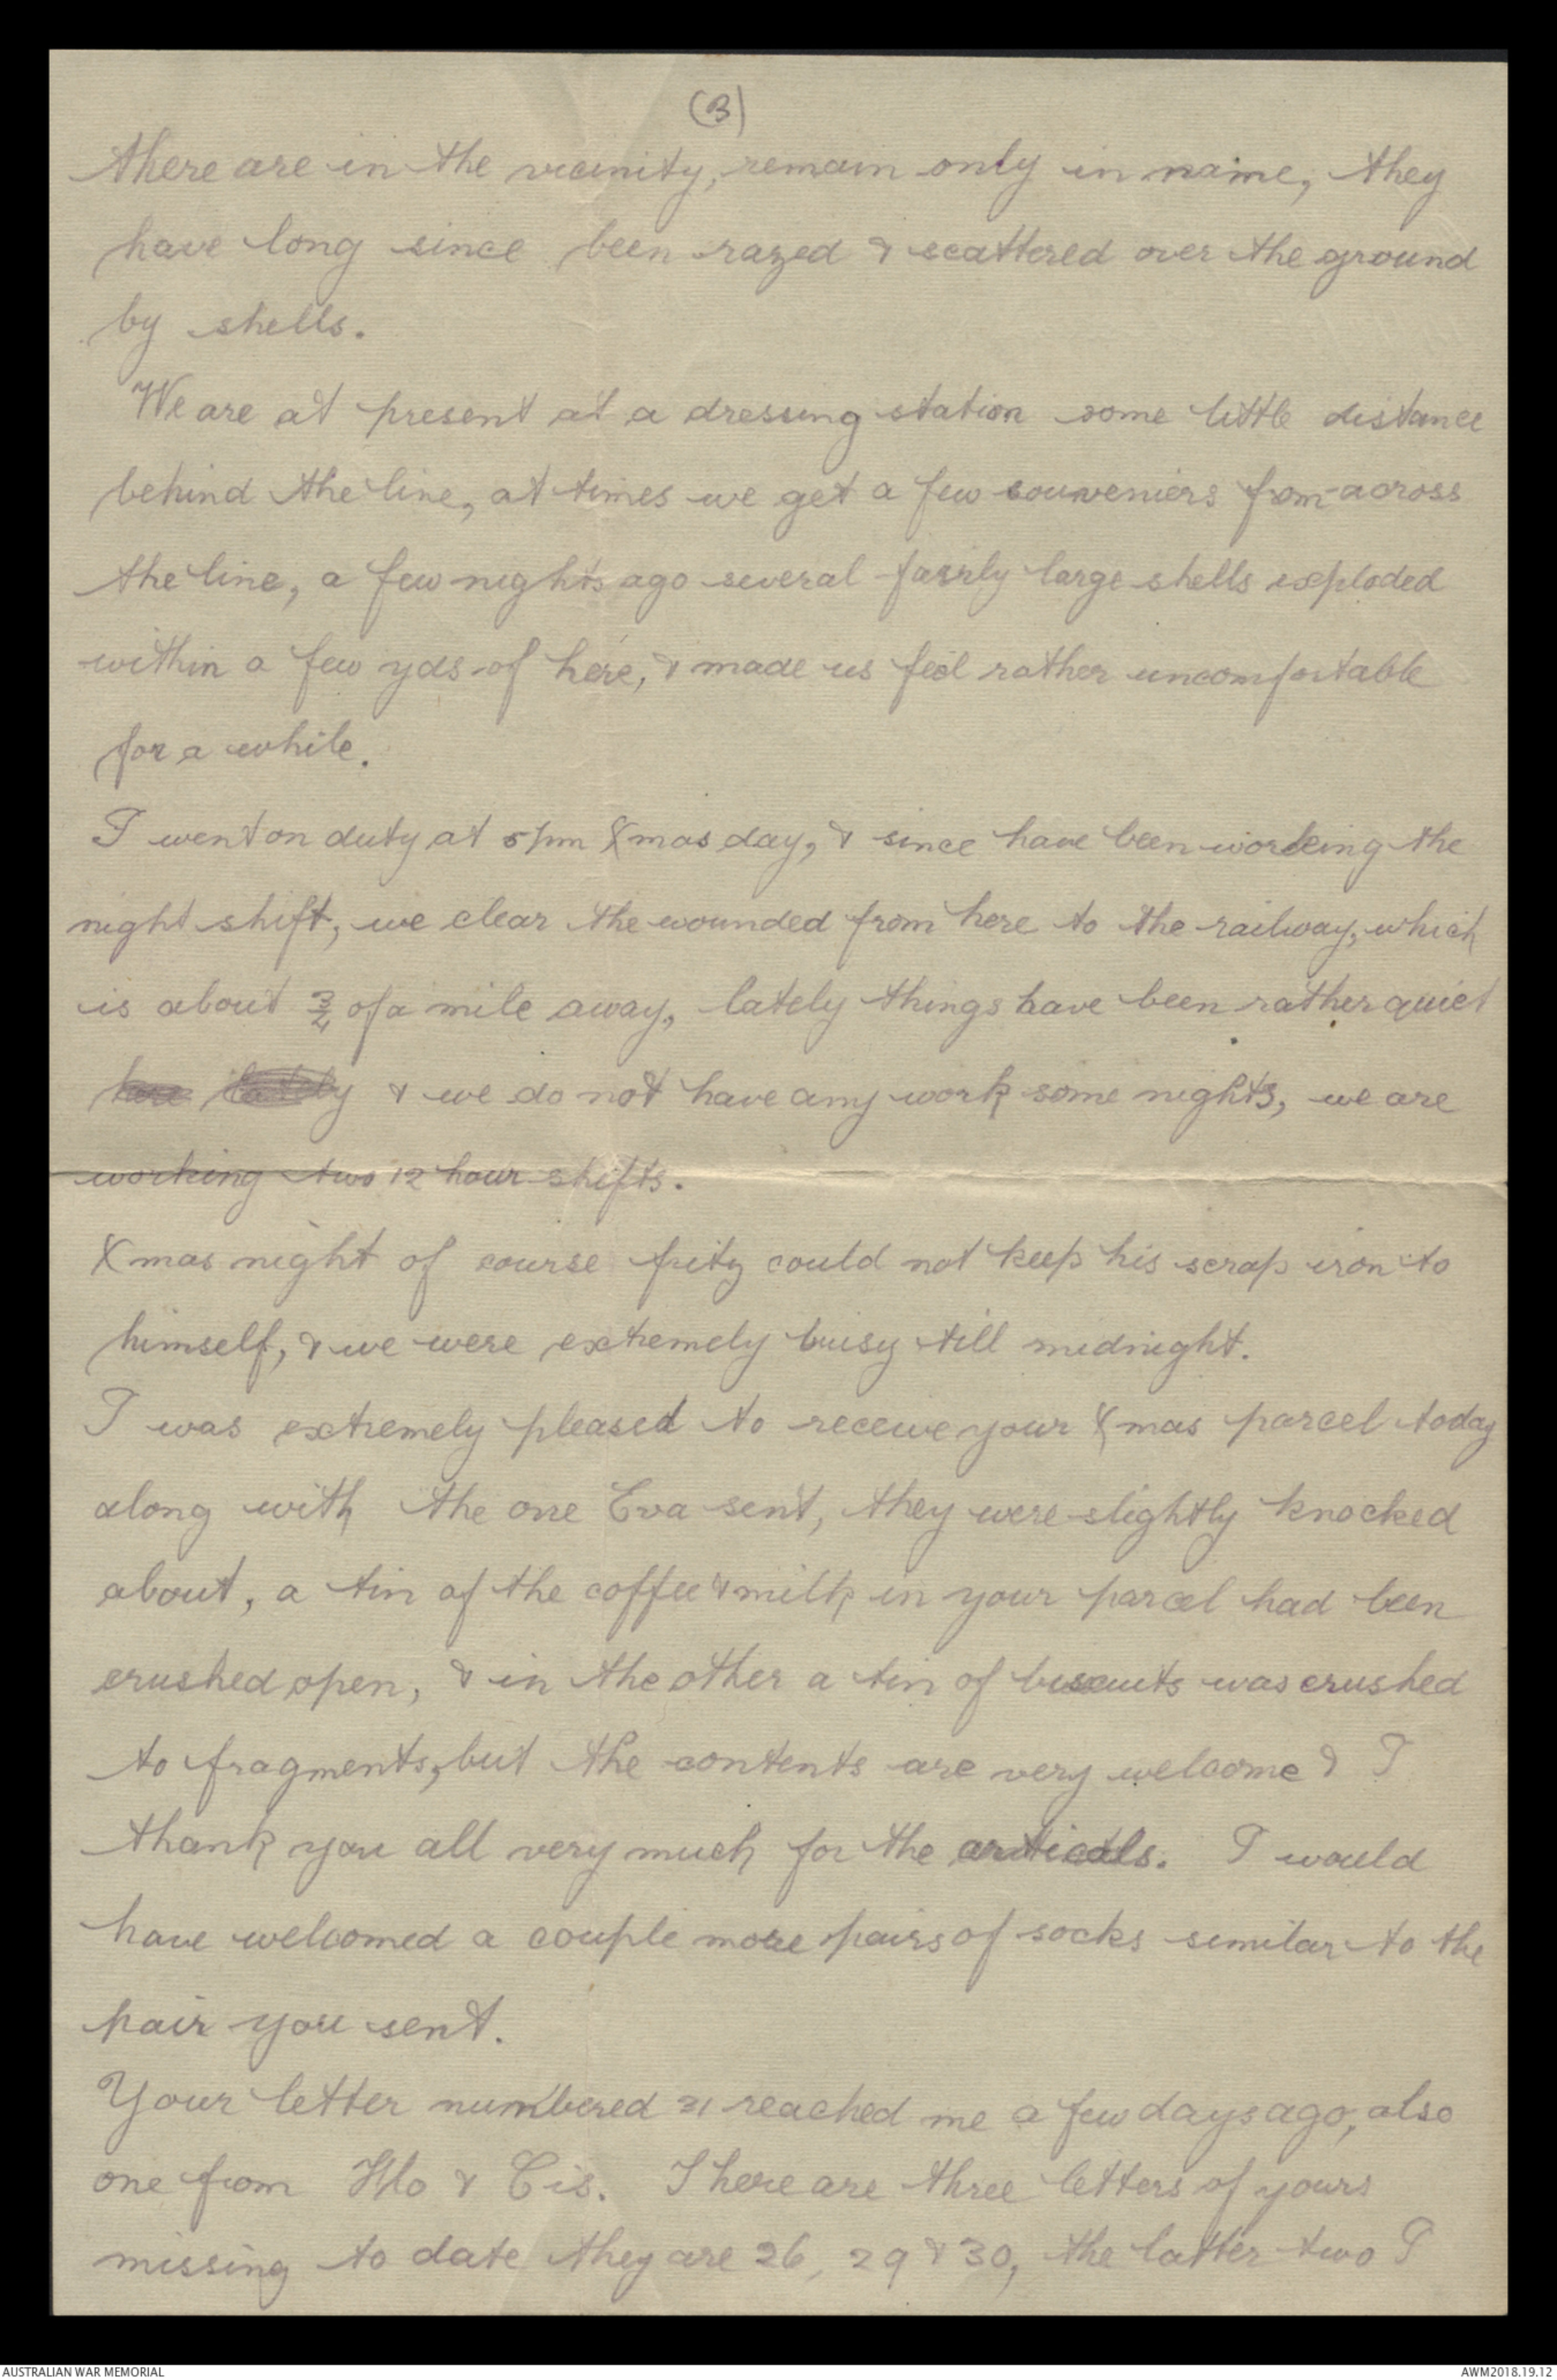 (3)
there are in the vicinity, remain only in name, they
have long since been razed & scattered over the ground
by shells.
We are at present at a dressing station some little distance
behind the line, at times we get a few souveniers from across
the line, a few nights ago several fairly large shells exploded
within a few yds of here, & made us feel rather uncomfortable
for a while.
I went on duty at 5pm Xmas day, & since have been working the
night shift, we clear the wounded from here to the railway, which
is about 3/4 of a mile away, lately things have been rather quiet
here lately & we do not have any work some nights, we are
working two 12 hour shifts.
Xmas night of course fritz could not keep his scrap iron to
himself, & we were extremely buisy till midnight.
I was extremely pleased to receive your Xmas parcel today
along with the one Eva sent, they were slightly knocked
about, a tin of the coffee & milk in your parcel had been
crushed open, & in the other a tin of biscuits was crushed
to fragments, but the contents are very welcome & I
thank you all very much for the . I would
have welcomed a couple more pairs of socks similar to the
pair you sent.
Your letter numbered 31 reached me a few days ago, also
one from Flo & Cis. There are three letters of yours
missing to date they are 26, 29 & 30, the latter two I
AUSTRALIAN WAR MEMORIAL
AWM2018.19.17